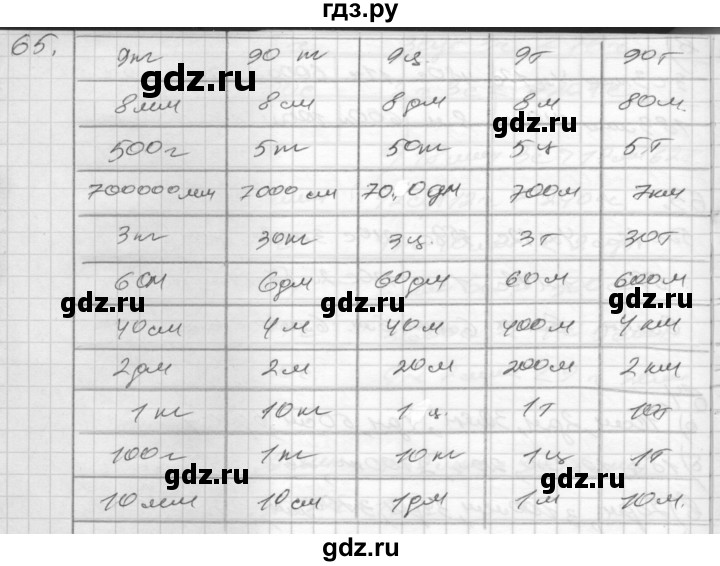 гдз.ру
65. 9кг 90 кг 9ц. 9т 90т
gdz.ru
8мм 8см 8дм 8м 80м.
gdz.ru
500г 5кг 50кг 5ц 5т
700000мм 7000см 70,0дм 700м 7км
3кг 30кг 3ц. 3т 30т
6см 6дм 60дм 60м 600м
gdz.ru gdz.ru gdz.ru
40см 4м 40м 400м 4км
2дм 2м 20м 200м 2км
1кг 10кг 1ц. 1т 10т
100г 1кг 10кг 1ц 1т
gdz.ru gdz.ru
10мм 10см 1дм 1м 10м.
gdz.ru